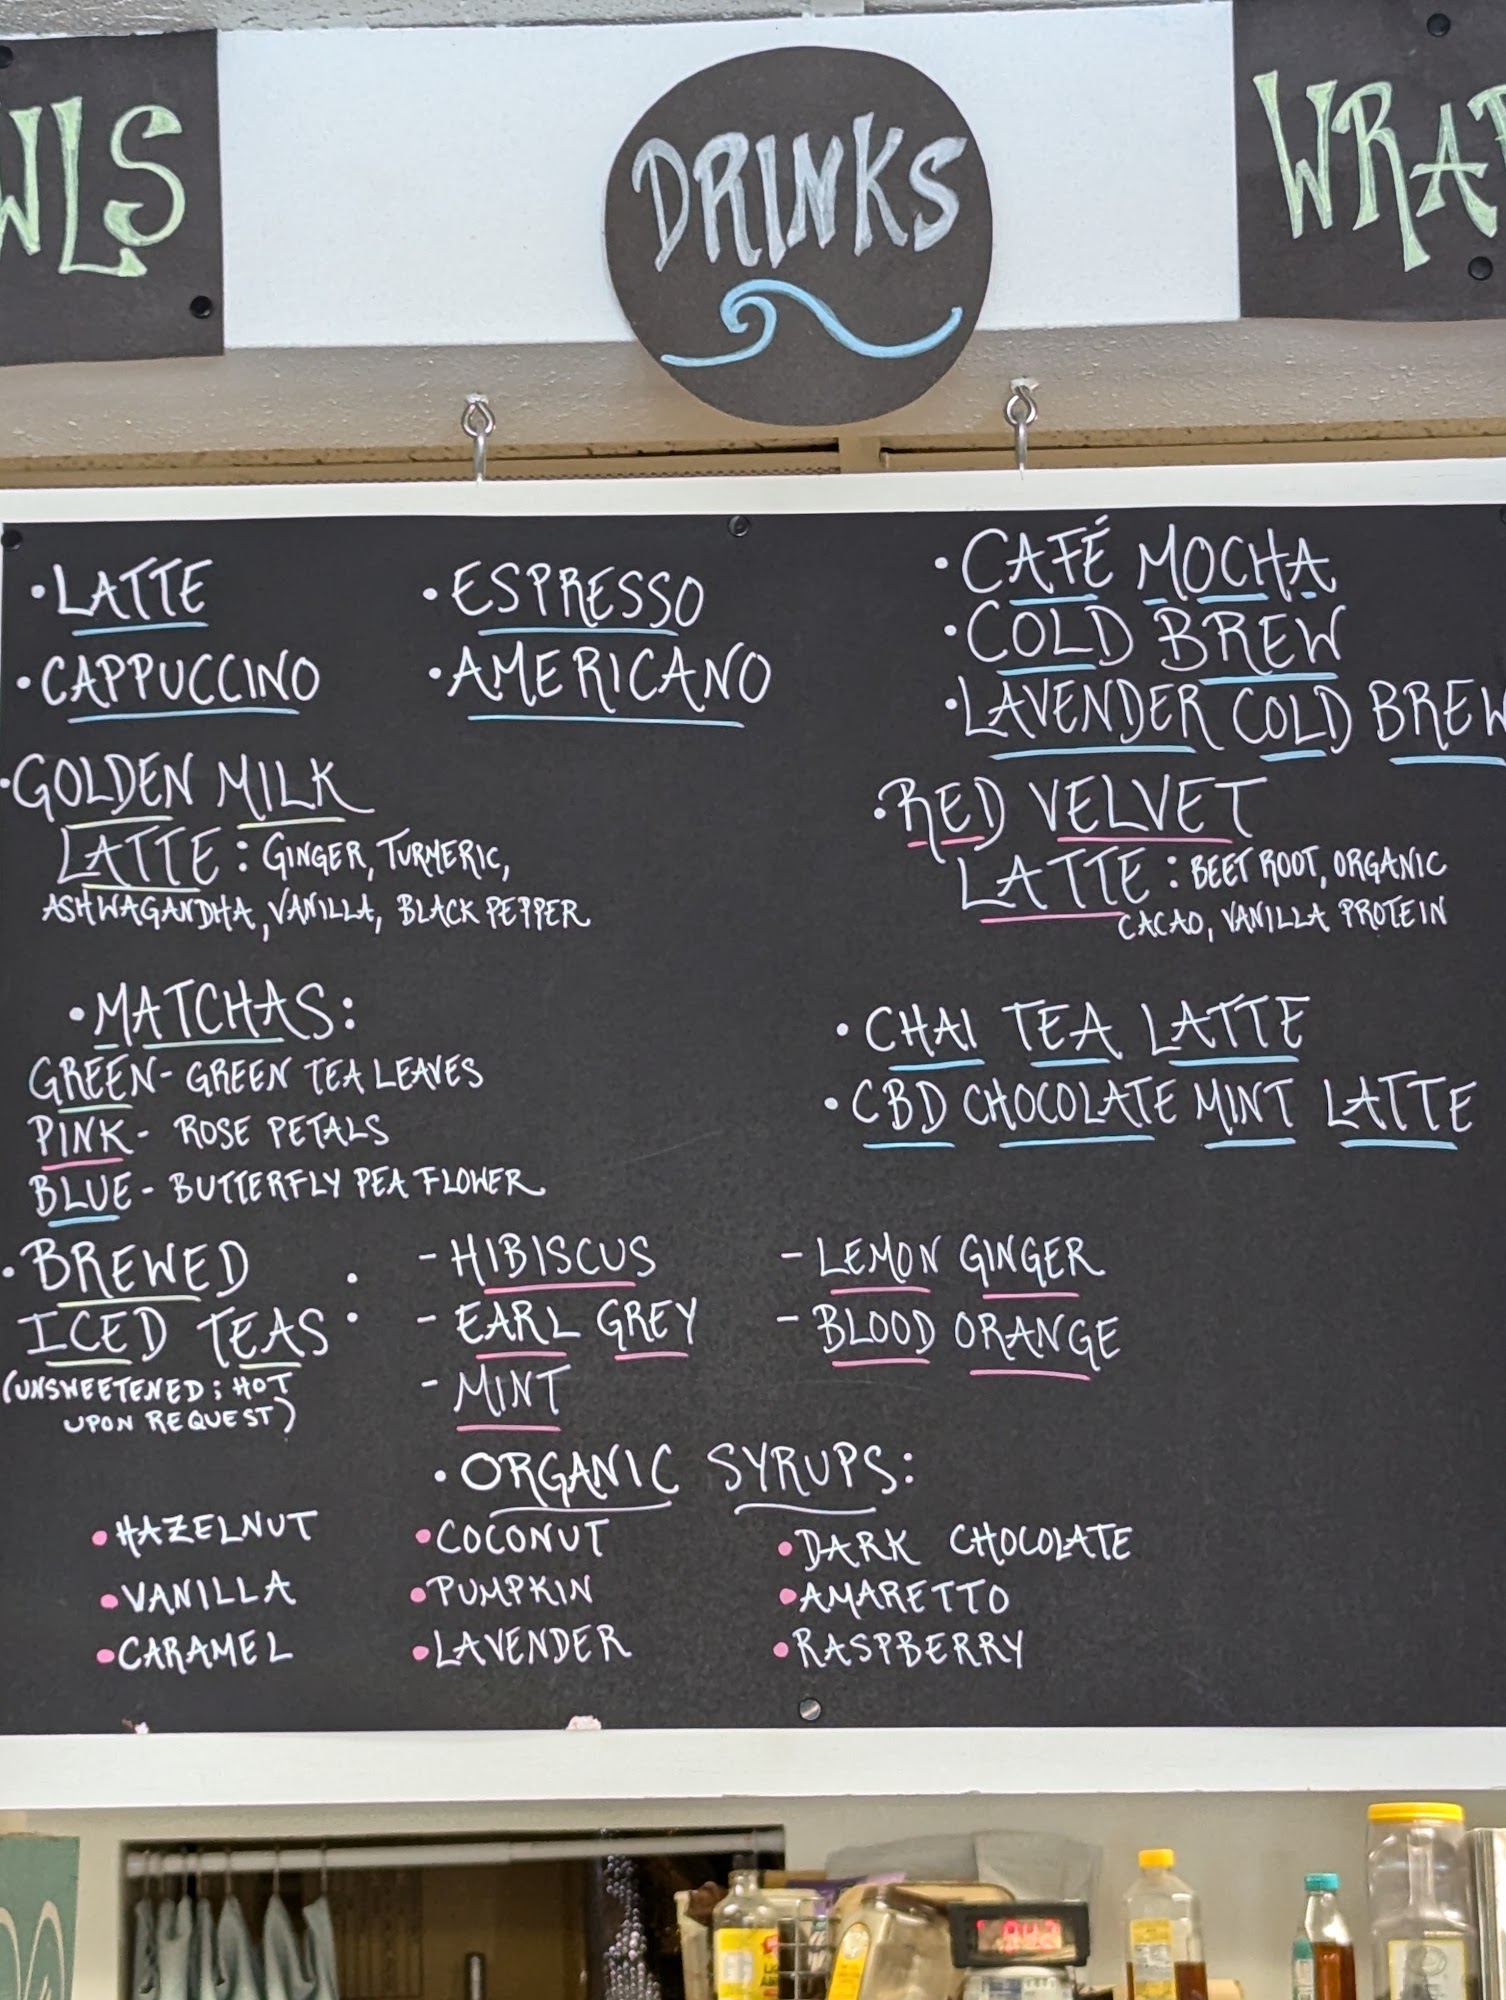 DRINKS
• LATTE
• CAPPUCCINO
• ESPRESSO
• AMERICANO
• CAFÉ MOCHA
• COLD BREW
• LAVENDER COLD BREW
• GOLDEN MILK
LATTE: GINGER, TURMERIC,
ASHWAGANDHA, VANILLA, BLACK PEPPER
• RED VELVET
LATTE: BEET ROOT, ORGANIC
CACAO, VANILLA PROTEIN
• MATCHAS:
GREEN- GREEN TEA LEAVES
PINK- ROSE PETALS
BLUE- BUTTERFLY PEA FLOWER
• CHAI TEA LATTE
• CBD CHOCOLATE MINT LATTE
• BREWED
ICED TEAS:
(UNSWEETENED; HOT
UPON REQUEST)
- HIBISCUS
- EARL GREY
- MINT
- LEMON GINGER
- BLOOD ORANGE
• ORGANIC SYRUPS:
• HAZELNUT
• VANILLA
• CARAMEL
• COCONUT
• PUMPKIN
• LAVENDER
• DARK CHOCOLATE
• AMARETTO
• RASPBERRY